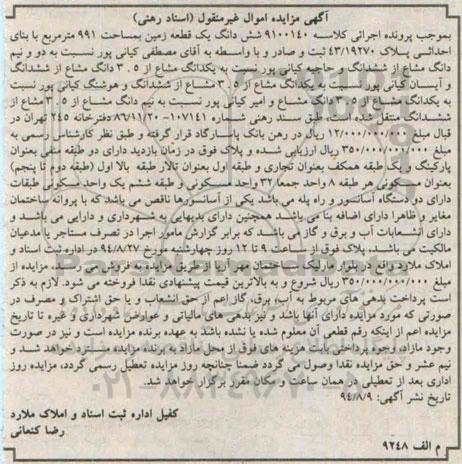 آگهی مزایده اموال غیرمنقول (اسناد رهنی)
بموجب پرونده اجرائی کلاسه ۹۱۰۰۱۴۰ شش دانگ یک قطعه زمین بمساحت ۹۹۱ مترمربع با بنای
احداثی پلاک ۴۳/۱۹۲۷۰ ثبت و صادر و با واسطه به آقای مصطفی کیانی پور نسبت به دو و نیم
دانگ مشاع از ششدانگ و حاجیه کیانی پور نسبت به یکدانگ مشاع از ۳.۵ دانگ مشاع از ششدانگ
و آیسان کیانی پور نسبت به یکدانگ مشاع از ۳.۵ مشاع از ششدانگ و هوشنگ کیانی پور نسبت
به یکدانگ مشاع از ۳.۵ دانگ مشاع و امیر کیانی پور نسبت به نیم دانگ مشاع از ۳.۵ مشاع از
ششدانگ منتقل شده است. طبق سند رهنی شماره ۱۰۷۱۴۱-۸۶/۱۱/۳۰ دفترخانه ۲۴۵ تهران در
قبال مبلغ ۱۲/۰۰۰/۰۰۰/۰۰۰ ریال در رهن بانک پاسارگاد قرار گرفته و طبق نظر کارشناس رسمی به
مبلغ ۳۵۰/۰۰۰/۰۰۰/۰۰۰ ریال ارزیابی شده و پلاک فوق در زمان بازدید دارای دو طبقه منفی بعنوان
پارکینگ و یک طبقه همکف بعنوان تجاری و طبقه اول بعنوان تالار طبقه بالا اول (طبقه دوم تا پنجم)
بعنوان مسکونی هر طبقه ۸ واحد جمعا ۳۲ واحد مسکونی و طبقه ششم یک واحد مسکونی طبقات
دارای دو دستگاه آسانسور و راه پله می باشد یکی از آسانسورها ناقص می باشد که با پروانه ساختمان
مغایر و ظاهرا دارای اضافه بنا می باشد همچنین دارای بدیهایی به شهرداری و دارایی می باشد و
دارای انشعابات آب و برق و گاز می باشد که برابر گزارش مامور اجرا در تصرف مستاجر یا مدعیان
مالکیت می باشد، پلاک فوق از ساعت ۹ تا ۱۲ روز چهارشنبه مورخ ۹۴/۸/۲۷ در اداره ثبت اسناد و
املاک ملارد واقع در بلوار مارلیک ساختمان مهر آریا از طریق مزایده به فروش می رسد، مزایده از
مبلغ ۳۵۰/۰۰۰/۰۰۰/۰۰۰ ریال شروع و به بالاترین قیمت پیشنهادی نقدا فروخته می شود. لازم به ذکر
است پرداخت بدهی های مربوط به آب، برق، گاز اعم از حق انشعاب و یا حق اشتراک و مصرف در
صورتی که مورد مزایده دارای آنها باشد و نیز بدهی های مالیاتی و عوارض شهرداری و غیره تا تاریخ
مزایده اعم از اینکه رقم قطعی آن معلوم شده یا نشده باشد به عهده برنده مزایده است و نیز در صورت
وجود مازاد، وجوه پرداختی بابت هزینه های فوق از محل مازاد به برنده مزایده مسترد خواهد شد و
نیم عشر و حق مزایده نقدا وصول می گردد ضمنا چنانچه روز مزایده تعطیل رسمی گردد، مزایده روز
اداری بعد از تعطیلی در همان ساعت و مکان مقرر برگزار خواهد شد.
تاریخ نشر آگهی: ۹۴/۸/۹
کفیل اداره ثبت اسناد و املاک ملارد
رضا کنعانی
م الف ۹۲۴۸